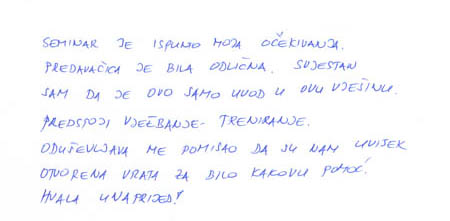 SEMINAR JE ISPUNIO MOJA OČEKIVANJA.
PREDAVAČICA JE BILA ODLIČNA. SVJESTAN
SAM DA JE OVO SAMO UVOD U OVU VJEŠTINU.
PREDSTOJI VJEŽBANJE - TRENIRANJE.
ODUŠEVLJAVA ME POMISAO DA SU NAM UVIJEK
OTVORENA VRATA ZA BILO KAKOVU POMOĆ.
HVALA UNAPRIJED!